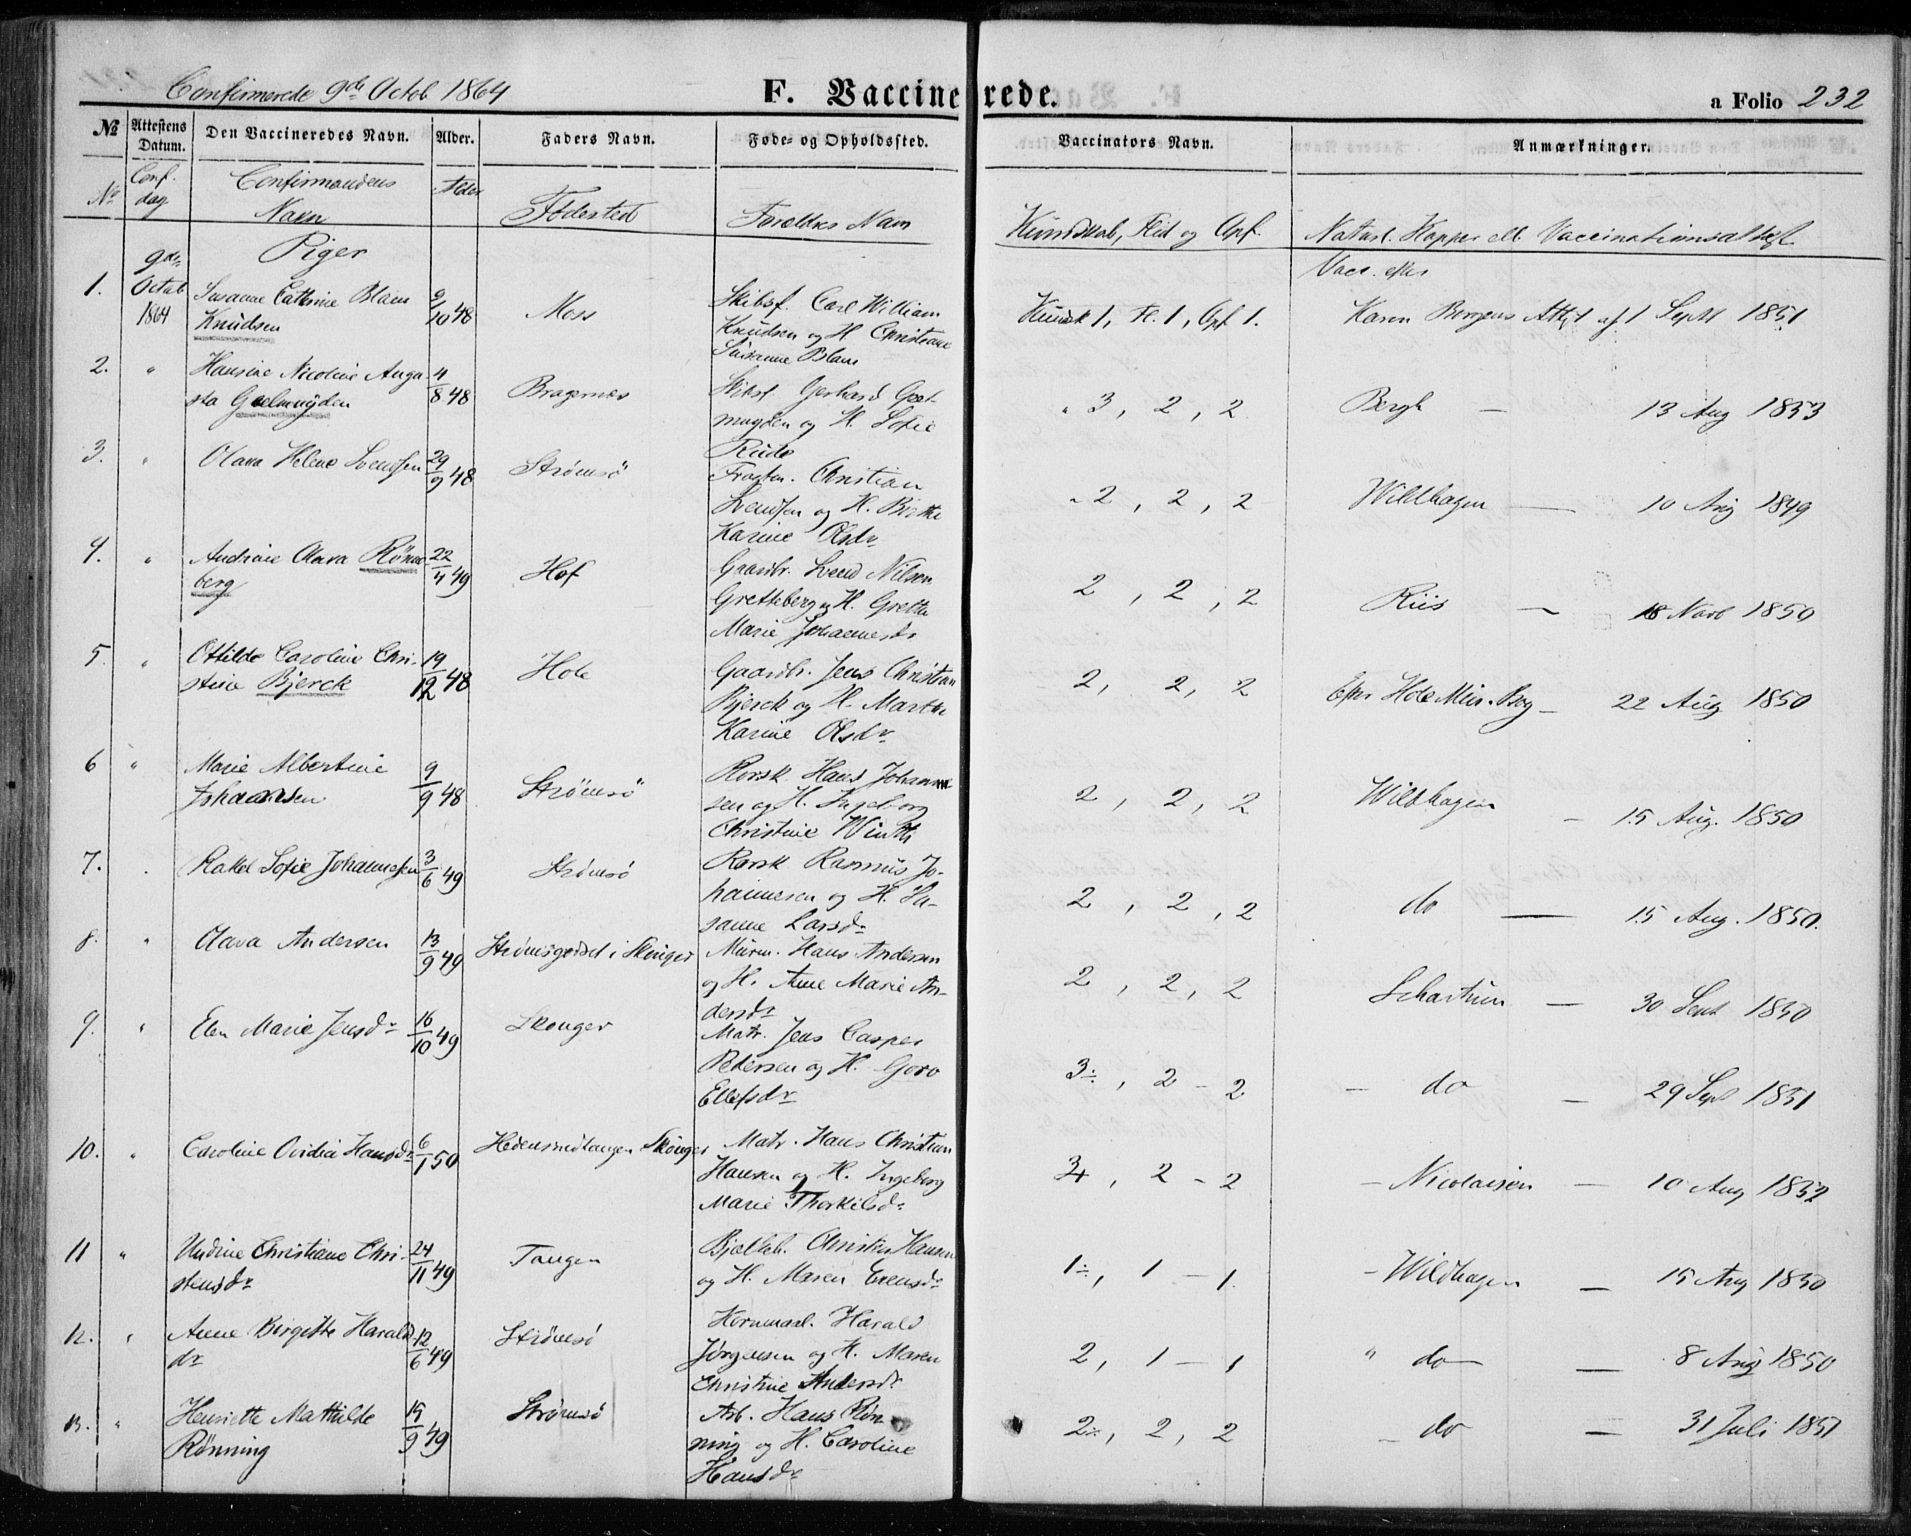 Confirmerede 9de Octob 1864
F. Vaccinerede.
a Folio 232
№ Attestens Datum. Den Vaccineredes Navn. Alder. Faders Navn. Føde- og Opholdssted. Vaccinators Navn. Anmærkninger.
№ Conf. dag Confirmandens Navn Alder Födested Foreldres Navn Kundskab, Flid og Opf. Naturl. Kopper ell. Vaccinationsattest
Piger
Vacc. efter
1. 9de Octob 1864 Susanne Cathrine Blam 9/10 48 Moss Skibsf. Carl William Kundsk 1, Fl. 1, Opf 1. Karen Borgens Attest af 1 Septbr 1851
Knudsen Knudsen og H. Christiane
Susanne Blam
2. " Hansine Nicoline Augu- 4/8 48 Bragernes Skibsf Gerhard Geel- " 3, 2, 2 Bergh — 13 Aug 1853
sta Geelmuyden muyden og H. Sofie
Rude
3. " Olava Helene Svendsen 29/9 48 Strömsö Christian " 2, 2, 2 Wildhagen — 10 Aug 1849
Svendsen og H. Birthe
Karine Olsdr
4. " Andrine Olava Rönne- 22/4 49 Hof Gaardbr. Svend Nilsen 2, 2, 2 Riis — 18 Novb 1850
berg Gretteberg og H. Grethe
Marie Johannesdr
5. " Ottilde Caroline Chri- 19/12 48 Hole Gaardbr. Jens Christian 2, 2, 2 Efter Hole Min. Bog — 22 Aug 1850
stine Bjerck Bjerck og H. Marthe
Karine Olsdr
6 " Marie Albertine 9/9 48 Strömsö Rorsk. Hans Johann- 2, 2, 2 Wildhagen — 15 Aug. 1850
Johansen sen og H. Ingeborg
Christine Winth
7. . Rakel Sofie Johannesen 3/6 49 Strömsö Rorsk Rasmus Jo- 2, 2, 2 do — 15 Aug. 1850.
hannesen og H. Su-
sanne Larsdr
8. " Olava Andersen 13/9 49 Strömsgodset i Skouger Murm. Hans Andersen 2, 2, 2 Schartum — 30 Sept 1850
og H. Anne Marie An-
dersdr
9. " Elen Marie Jensdr 16/10 49 Skouger Matr. Jens Casper 3÷, 2 - 2 — do — 29 Sept 1851
Pedersen og H. Goro
Ellefsdr
10. " Caroline Ovidia Hansdr 6/1 50 Skouger Matr. Hans Christian 3+, 2 - 2 — Nicolaisen — 10 Aug 1852
Hansen og H. Ingeborg
Marie Thorkilsdr
11 " Undine Christiane Chri- 24/11 49 Tangen Christen Hansen 1÷, 1 - 1. — Wildhagen — 15 Aug 1850
stensdr og H. Maren Evensdr
12. " Anne Birgitte Harald 12/6 49 Strömsö Kornmaal. Harald 2, 1 - 1 " do — 8 Aug 1850
dr Jörgensen og H. Maren
Christine Andersdr
13. " Henriette Mathilde 15/9 49 Strömsö Arb. Hans Rön- 2÷, 2, 2 — do — 31 Juli 1851
Rönning ning og H. Caroline
Hansdr